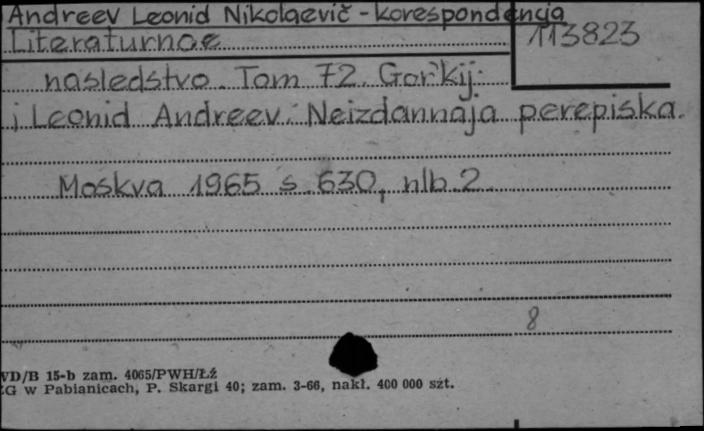 Andreev Leonid Nikolaevič - korespondencja
Literaturnoe
113823
nasledstvo. Tom 72. Gor'kij
i Leonid Andreev. Neizdannaja perepiska.
Moskva 1965 s. 630, nlb. 2.
8
VD/B 15-b zam. 4065/PWH/Łź
.G w Pabianicach, P. Skargi 40; zam. 3-66, nakł. 400 000 szt.